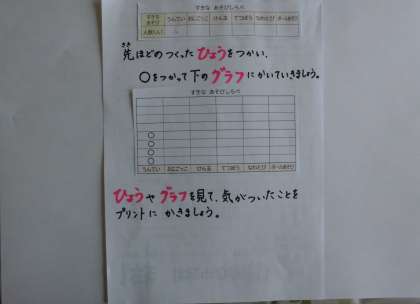 すきな あそびしらべ
すきな あそび うんてい おにごっこ けん玉 てつぼう なわとび ボールあそび
人数(人)
さき
先ほどのつくった ひょうをつかい、
○をつかって下の グラフ にかいていきましょう。
すきな あそびしらべ
○
○
○
○
うんてい おにごっこ けん玉 てつぼう なわとび ボールあそび
ひょうや グラフを見て、気がついたことを
プリントに かきましょう。